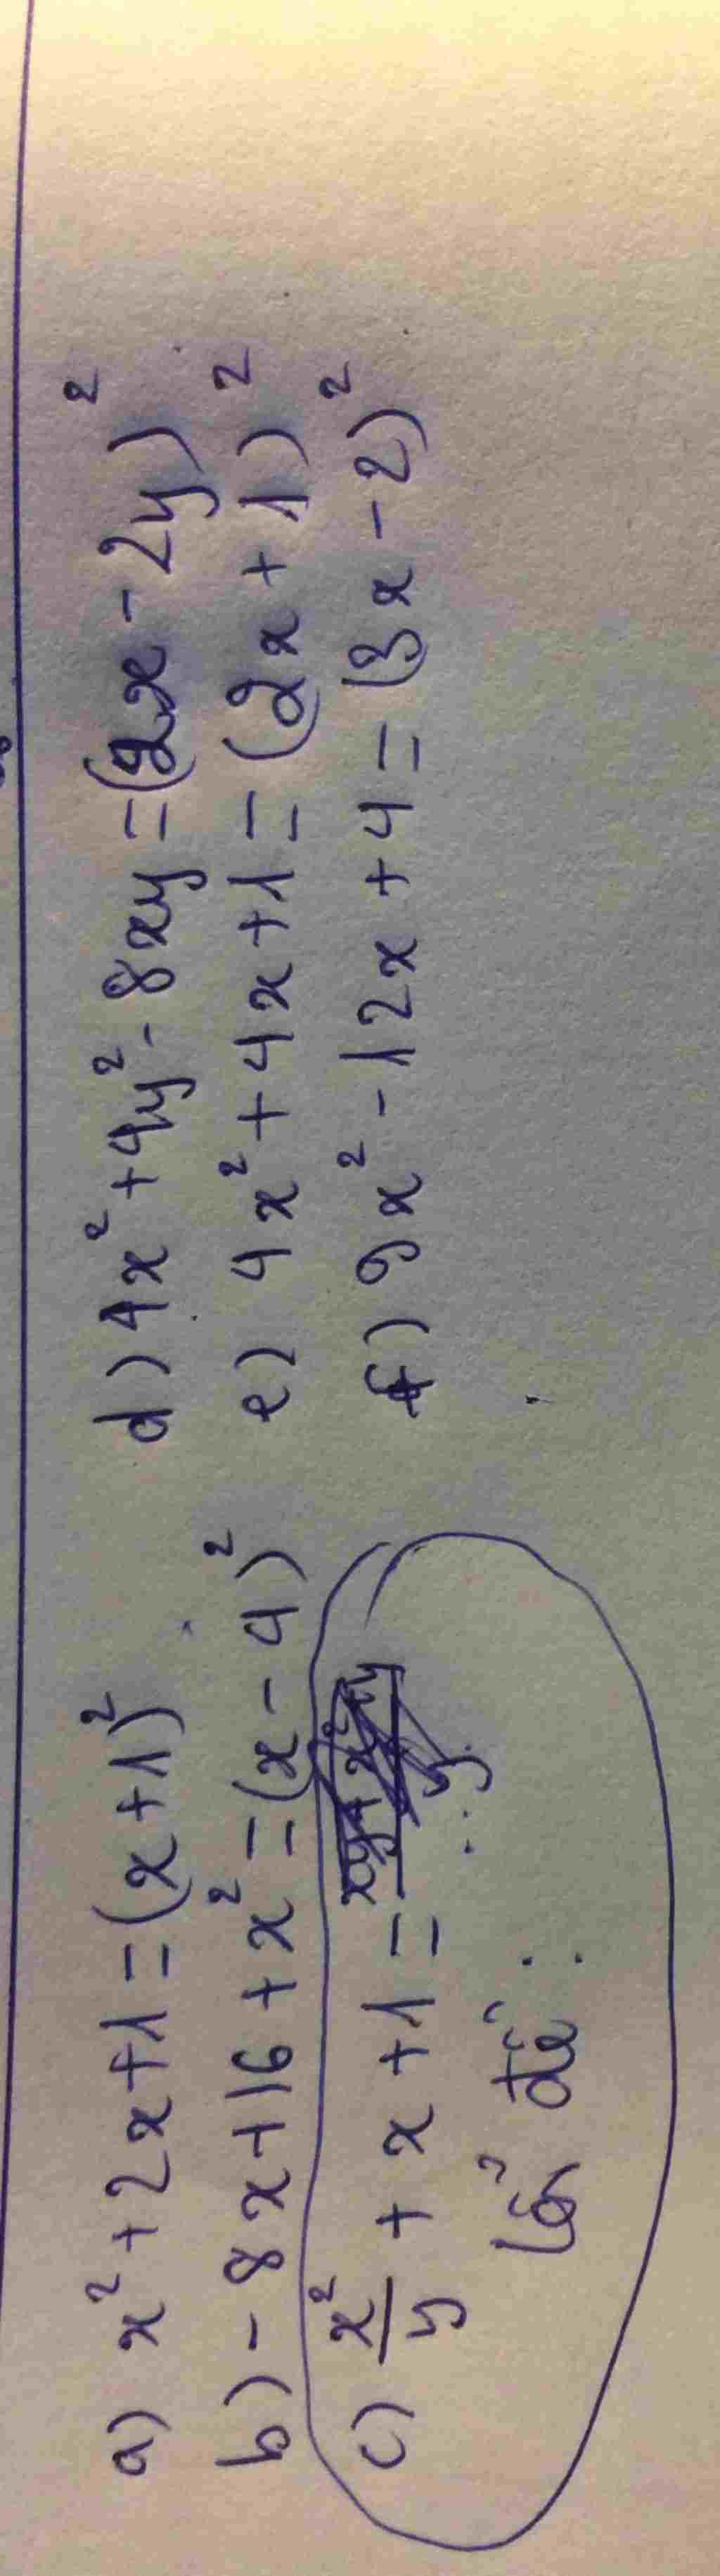 a) x² + 2x + 1 = (x + 1)²
b) - 8x + 16 + x² = (x - 4)²
c) x²/y + x + 1 =
đề
d) 4x² + 4y² - 8xy = (2x - 2y)²
e) 4x² + 4x + 1 = (2x + 1)²
f) 9x² - 12x + 4 = (3x - 2)²